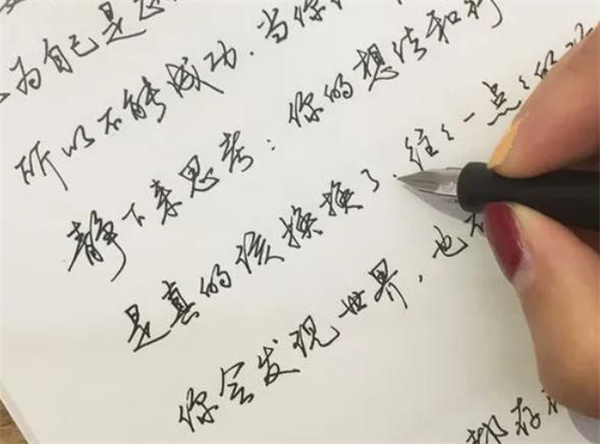 为自己是
所以不能成功.当你
静下来思考:你的想法和行
是真的该换换了.往々一点々的
你会发现世界,也
都存